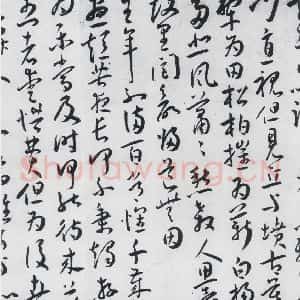 直視但見丘與墳古墓
犁為田松柏摧為薪白楊
多悲風蕭蕭愁殺人思
故里閭欲歸道無因
生年不滿百常懷千歲
短苦夜長何不秉燭遊
為樂當及時何能待來茲
愚者愛惜費但為後世
Shufawang.cn